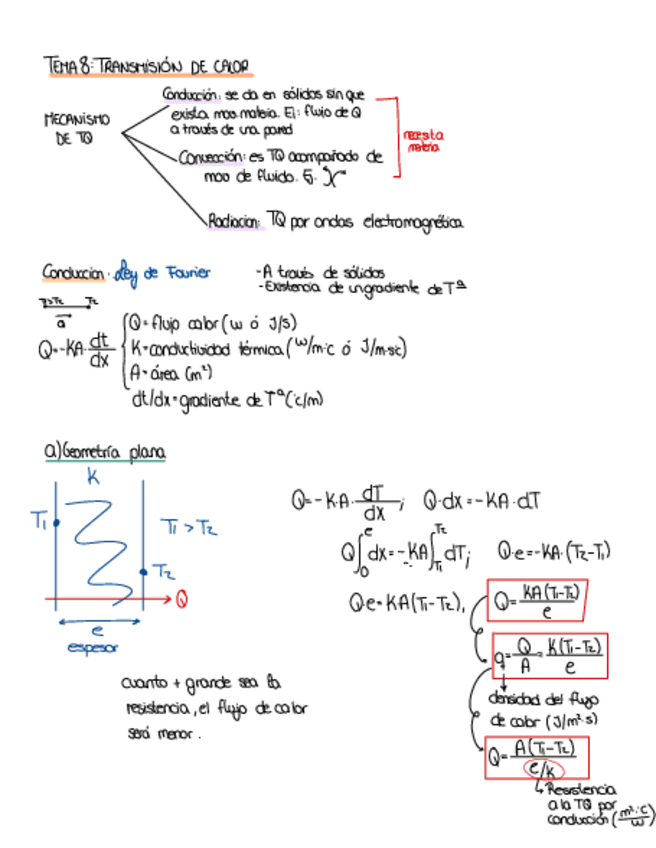 TEMA 8: TRANSMISIÓN DE CALOR
MECANISMO
DE TQ
Conducción: se da en sólidos sin que
exista mov. materia. Ej: flujo de Q
a través de una pared
Convección: es TQ acompañado de
mov de fluido. Ej.
necesita
materia
Radiacion: TQ por ondas electromagnética
Conduccion. Ley de Fourier
- A través de sólidos
- Existencia de un gradiente de Tª
T1>T2 T2
Q
Q=-KA·dt/dx
Q=flujo calor (w ó J/s)
K=conductividad térmica (w/m·c ó J/m·s·c)
A=área (m²)
dt/dx=gradiente de Tª (c/m)
a) Geometría plana
K
T1
T1 > T2
T2
Q
e
espesor
Q=-K·A·dT/dx; Q·dx=-KA·dT
Q∫₀ᵉdx=-KA∫_T1^T2 dT; Q·e=-KA·(T2-T1)
Q·e=KA(T1-T2), Q=KA(T1-T2)/e
q=Q/A=K(T1-T2)/e
densidad del flujo
de calor (J/m²·s)
Q=A(T1-T2)/e/K
Resistencia
a la TQ por
conducción (m²·c/w)
cuanto + grande sea la
resistencia, el flujo de calor
será menor.